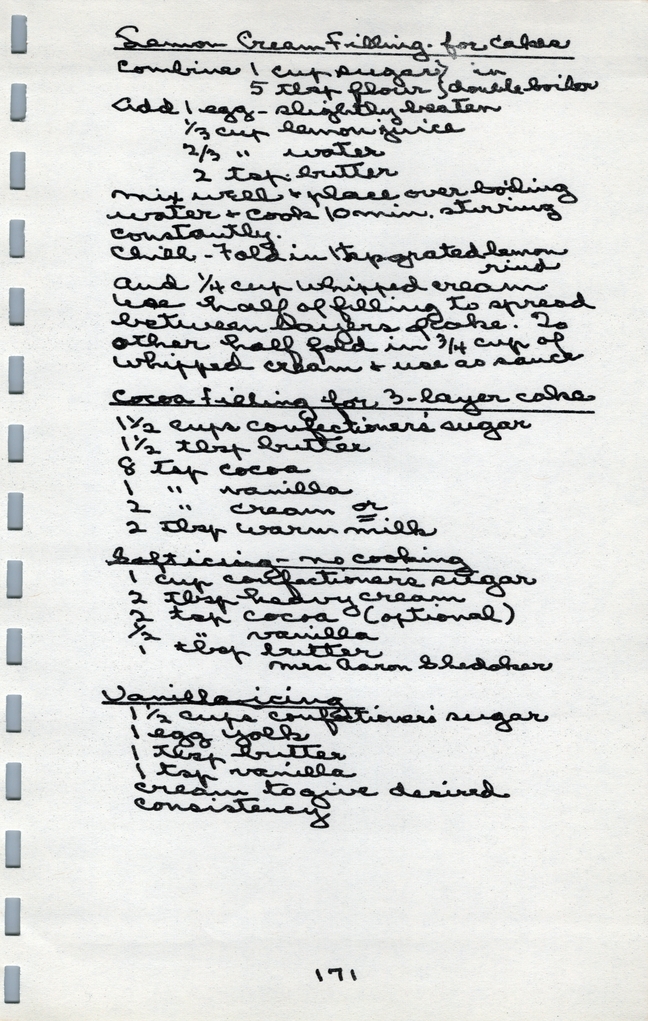 Lemon Cream Filling - for cakes
Combine 1 cup sugar } in
5 tbsp flour } double boiler
Add 1 egg - slightly beaten
1/3 cup lemon juice
2/3 " water
2 tsp. butter
mix well + place over boiling
water + cook 10 min. stirring
constantly.
Chill - Fold in 1 tsp grated lemon
rind
and 1/4 cup whipped cream
Use half of filling to spread
between layers of cake. To
other half fold in 3/4 cup of
whipped cream + use as sauce
Cocoa Filling for 3-layer cake
1 1/2 cups confectioners' sugar
1 1/2 tbsp butter
8 tsp cocoa
1 " vanilla
2 " cream or
2 tbsp warm milk
Soft icing - no cooking
1 cup confectioners sugar
2 tbsp heavy cream
2 tsp cocoa (optional)
1/2 " vanilla
1 tbsp butter
Mrs Aaron Shedaker
Vanilla icing
1 1/2 cups confectioners' sugar
1 egg yolk
1 tbsp butter
1 tsp vanilla
cream to give desired
consistency
171